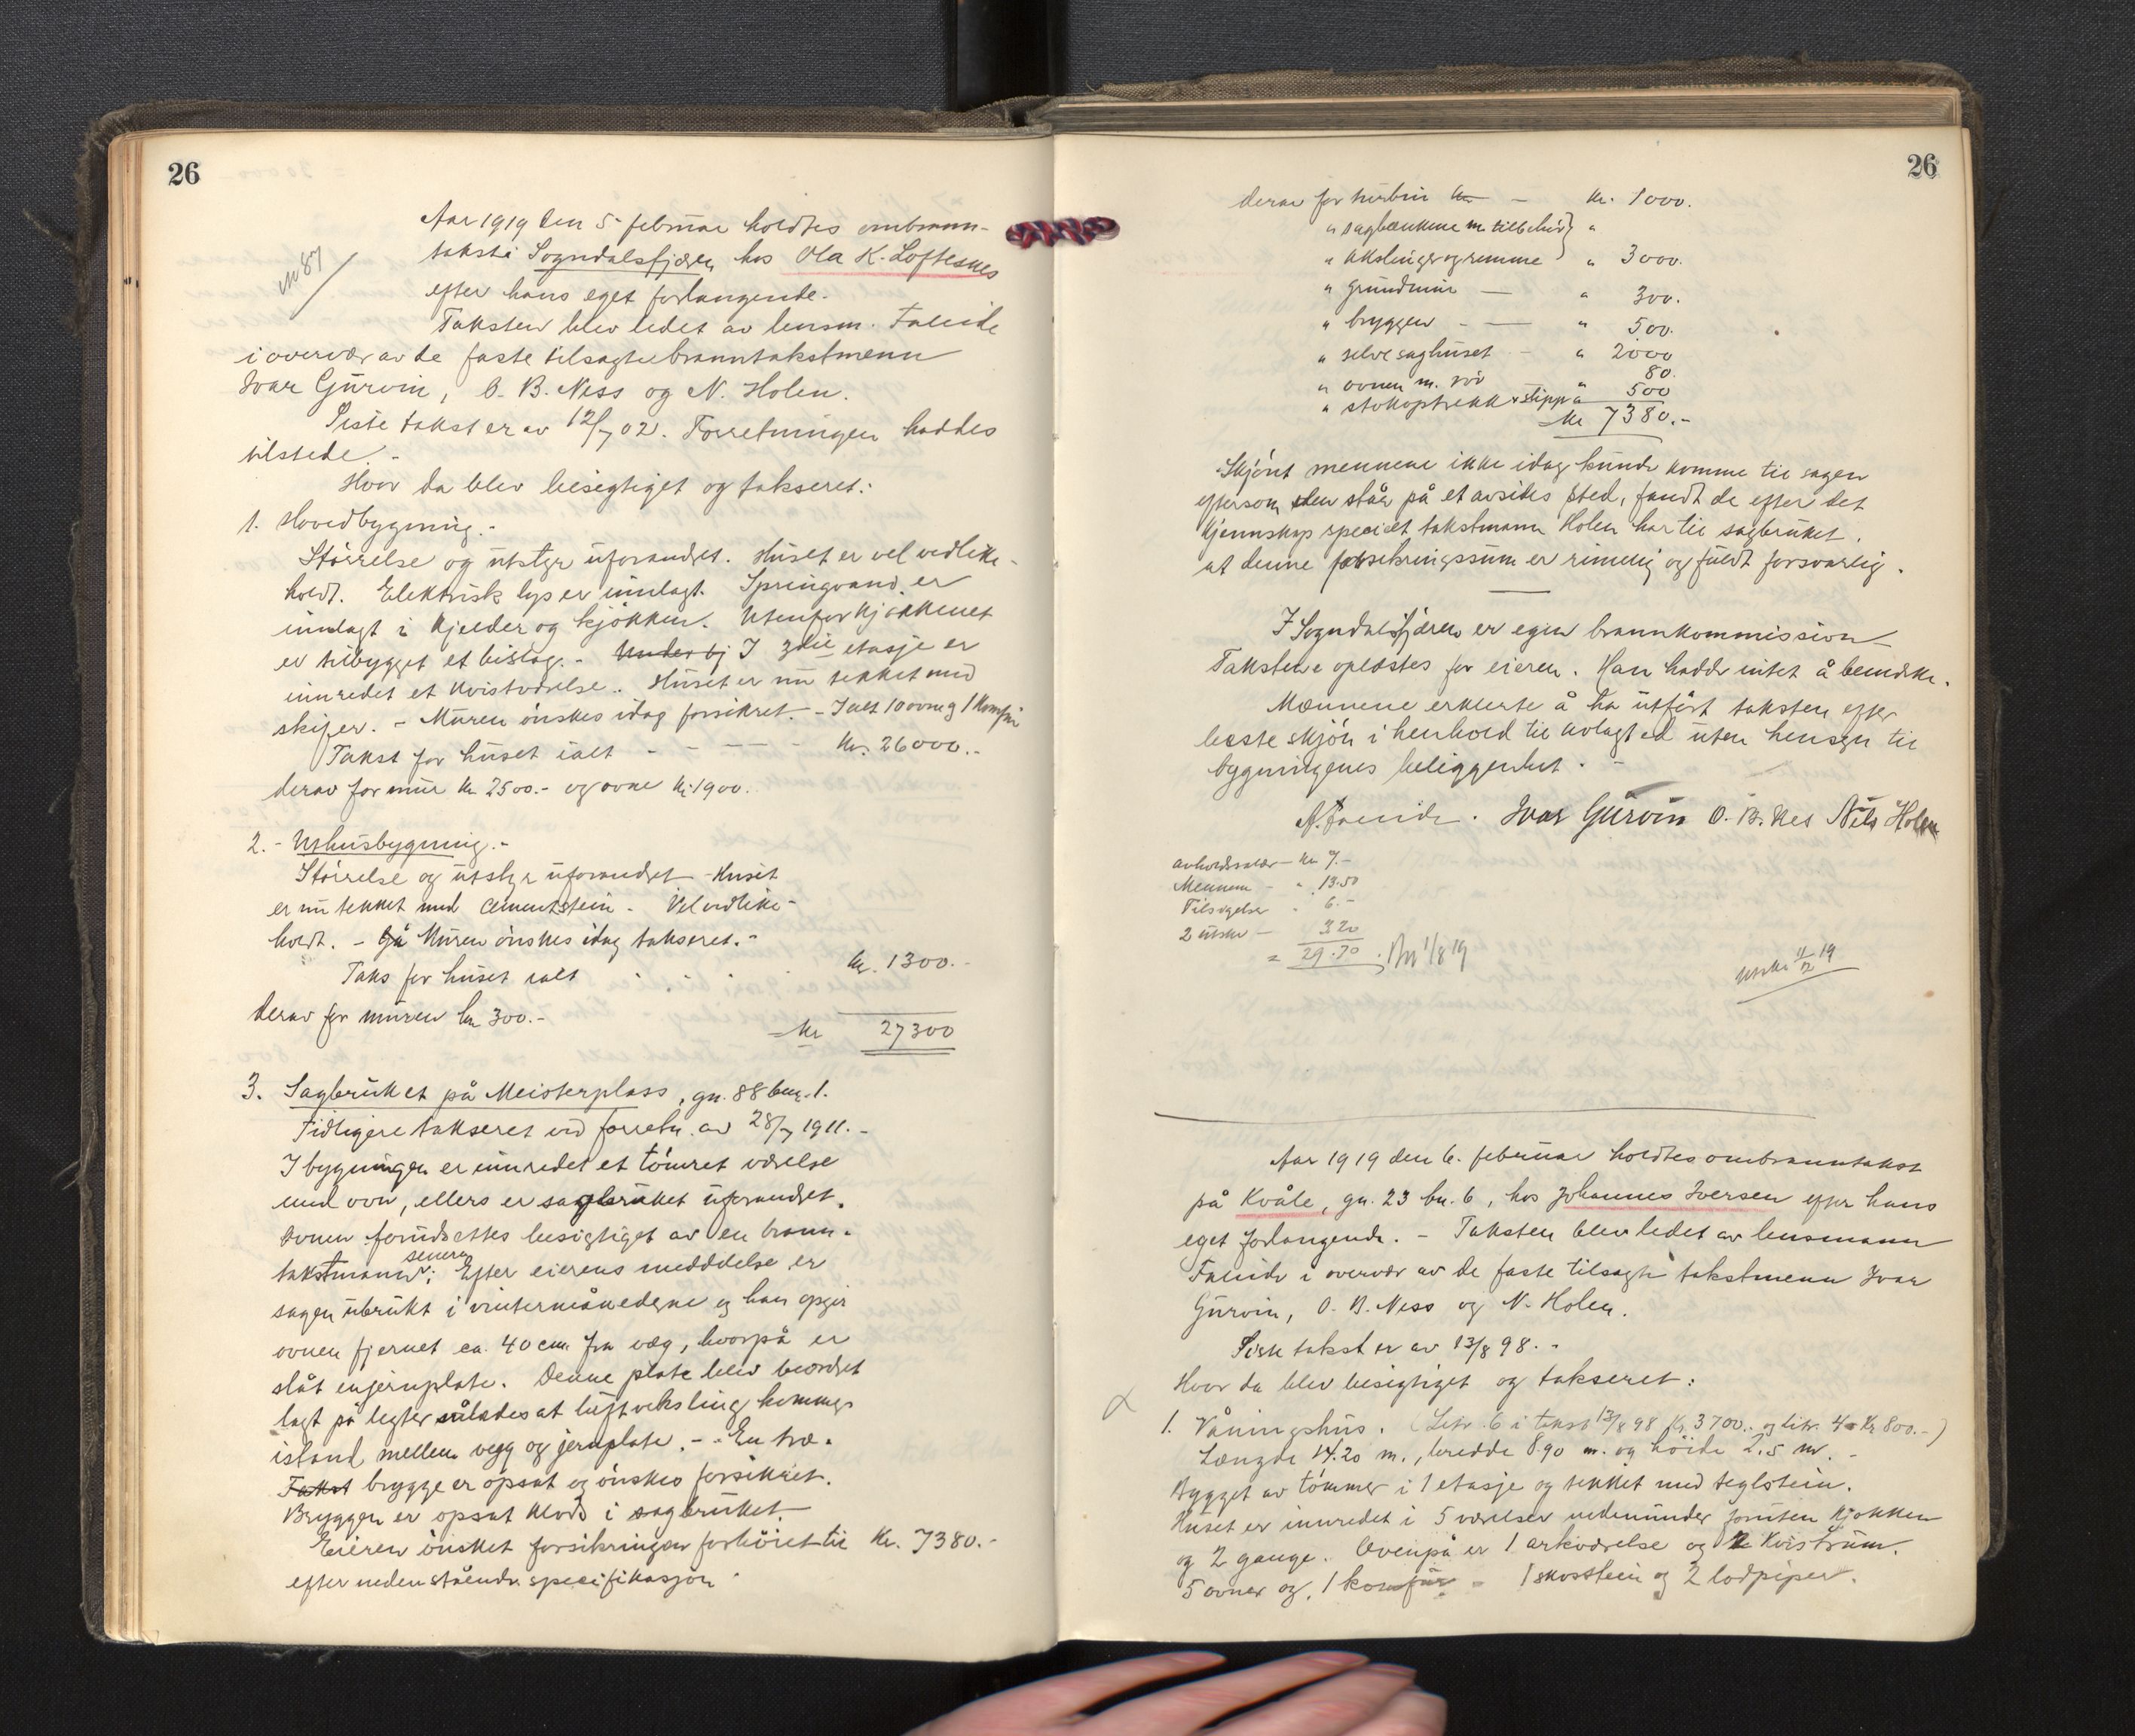 26
Aar 1919 den 5 februar holdtes ombrann-
takst i Sogndalsfjæren hos Ola K. Loftesnes
efter hans eget forlangende.
Taksten blev ledet av lensm. Faleide
i overvær av de faste tilsagte branntakstmenn
Ivar Gurvin, O. B. Ness og N. Holen.
Siste takst er av 12/7 02. Forretningen haddes
tilstede.-
Hvor da blev besigtiget og takseret:
1. Hovedbygning.-
Størrelse og utstyr uforandret. Huset er vel vedlike-
holdt. Elektrisk lys er innlagt. Springvand er
innlagt i kjelder og kjøkken. Utenfor kjøkkenet
er tilbygget et bislag.- Under bj I 3die etasje er
innredet et kvistværelse. Huset er nu tekket med
skifer.- Muren ønskes idag forsikret.- Ialt 10 ovne og 1 komfur
Takst for huset ialt - - - - kr. 26000.-
derav for mur kr 2500.- og ovne kr. 1900.
2. - Uthusbygning.-
Størrelse og utstyr uforandret - Huset
er nu tekket med cementstein - Vel vedlike-
holdt. - Muren ønskes idag takseret.-
Taks for huset ialt kr. 1300.-
derav for muren kr 300.-
= kr 27300
3. Sagbruket på Meisterplass, gn. 88 bnr. 1.
Tidligere takseret ved forretn. av 28/7 1911.-
I bygningen er innredet et tømret værelse
med ovn, ellers er sagbruket uforandret.
Ovnen forudsættes besigtiget av en brann-
takstmann senere; Efter eierens medddelse er
sagen ubrukt i vintermånederne og han opgir
ovnen fjernet ca. 40 cm. fra væg, hvorpå er
slåt en jernplate. Denne plate blev beordret
lagt på legter således at luftveksling kommer
istand mellem vegg og jernplate.- - En træ-
Takst brygge er opsat og ønskes forsikret.
Bryggen er opsat klods i sagbruket.
Eieren ønsket forsikringen forhøiet til kr. 7380.-
efter nedenstående specifikasjon
26
derav for turbin kr - kr. 1000.
" sagbænkene m. tilbehør } "
" akslinger og remme } " 3000.
" grundmur - " 300.
" bryggen - - " 500.
" selve saghuset - " 2000
" ovnen m. rör 80.
" stokoptrekk + slipp " 500
kr 7380.-
Skjønt mennene ikke idag kunde komme til sagen
eftersom den står på et avsides sted, fandt de efter det
kjennskap specielt takstmann Holen har til sagbruket,
at denne forsikringssum er rimelig og fuldt forsvarlig.
I Sogndalsfjæren er egen brannkommission
Takstene oplæstes for eieren. Han hadde intet å bemerke.
Mennene erklærte å ha utført taksten efter
beste skjøn i henhold til avlagt ed uten hensyn til
bygningenes beliggenhet.-
A. Faleide. Ivar Gurvin O. B. Nes Nils Holen
avholdssalær - kr 7.-
Mennene - " 13.50
Tilsigelse " 6.-
2 utskr - 3 20
= 29.70. 1/8 19
Utskr 11/12 19
Aar 1919 den 6. februar holdtes ombranntakst
på Kvåle, gn. 23 bn. 6, hos Johannes Iversen efter hans
eget forlangende. - Taksten blev ledet av lensmann
Faleide i overvær av de faste tilsagte takstmenn Ivar
Gurvin, O. B. Ness og N. Holen.
Siste takst er av 13/8 98.-
Hvor da blev besigtiget og takseret:
1. Våningshus. (Litr. 6 i takst 13/8 98 kr. 3700.- og litr. 4 kr 800.-)
Længde 14.20 m., bredde 8.90 m. og høide 2.5 m.-
Bygget av tømmer i 1 etasje og tekket med teglstein.
Huset er innredet i 5 værelser nedenunder foruten kjøkken
og 2 gange. Ovenpå er 1 arkværelse og 2 kvistrum.
5 ovner og 1 komfur - 1 skorstein og 2 lodpiper.